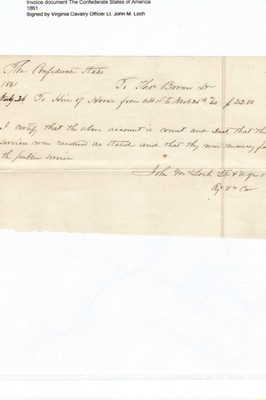 Invoice document The Confederate States of America
1861
Signed by Virginia Cavalry Officer Lt. John M. Loch
The Confederate States
1861 To Thos Brown Dr
To Hire of Horse from to Nov 25th $
I certify that the above account is correct and Just that the
services were rendered as stated and that they were necessary for
the public service
John M Loch Lt